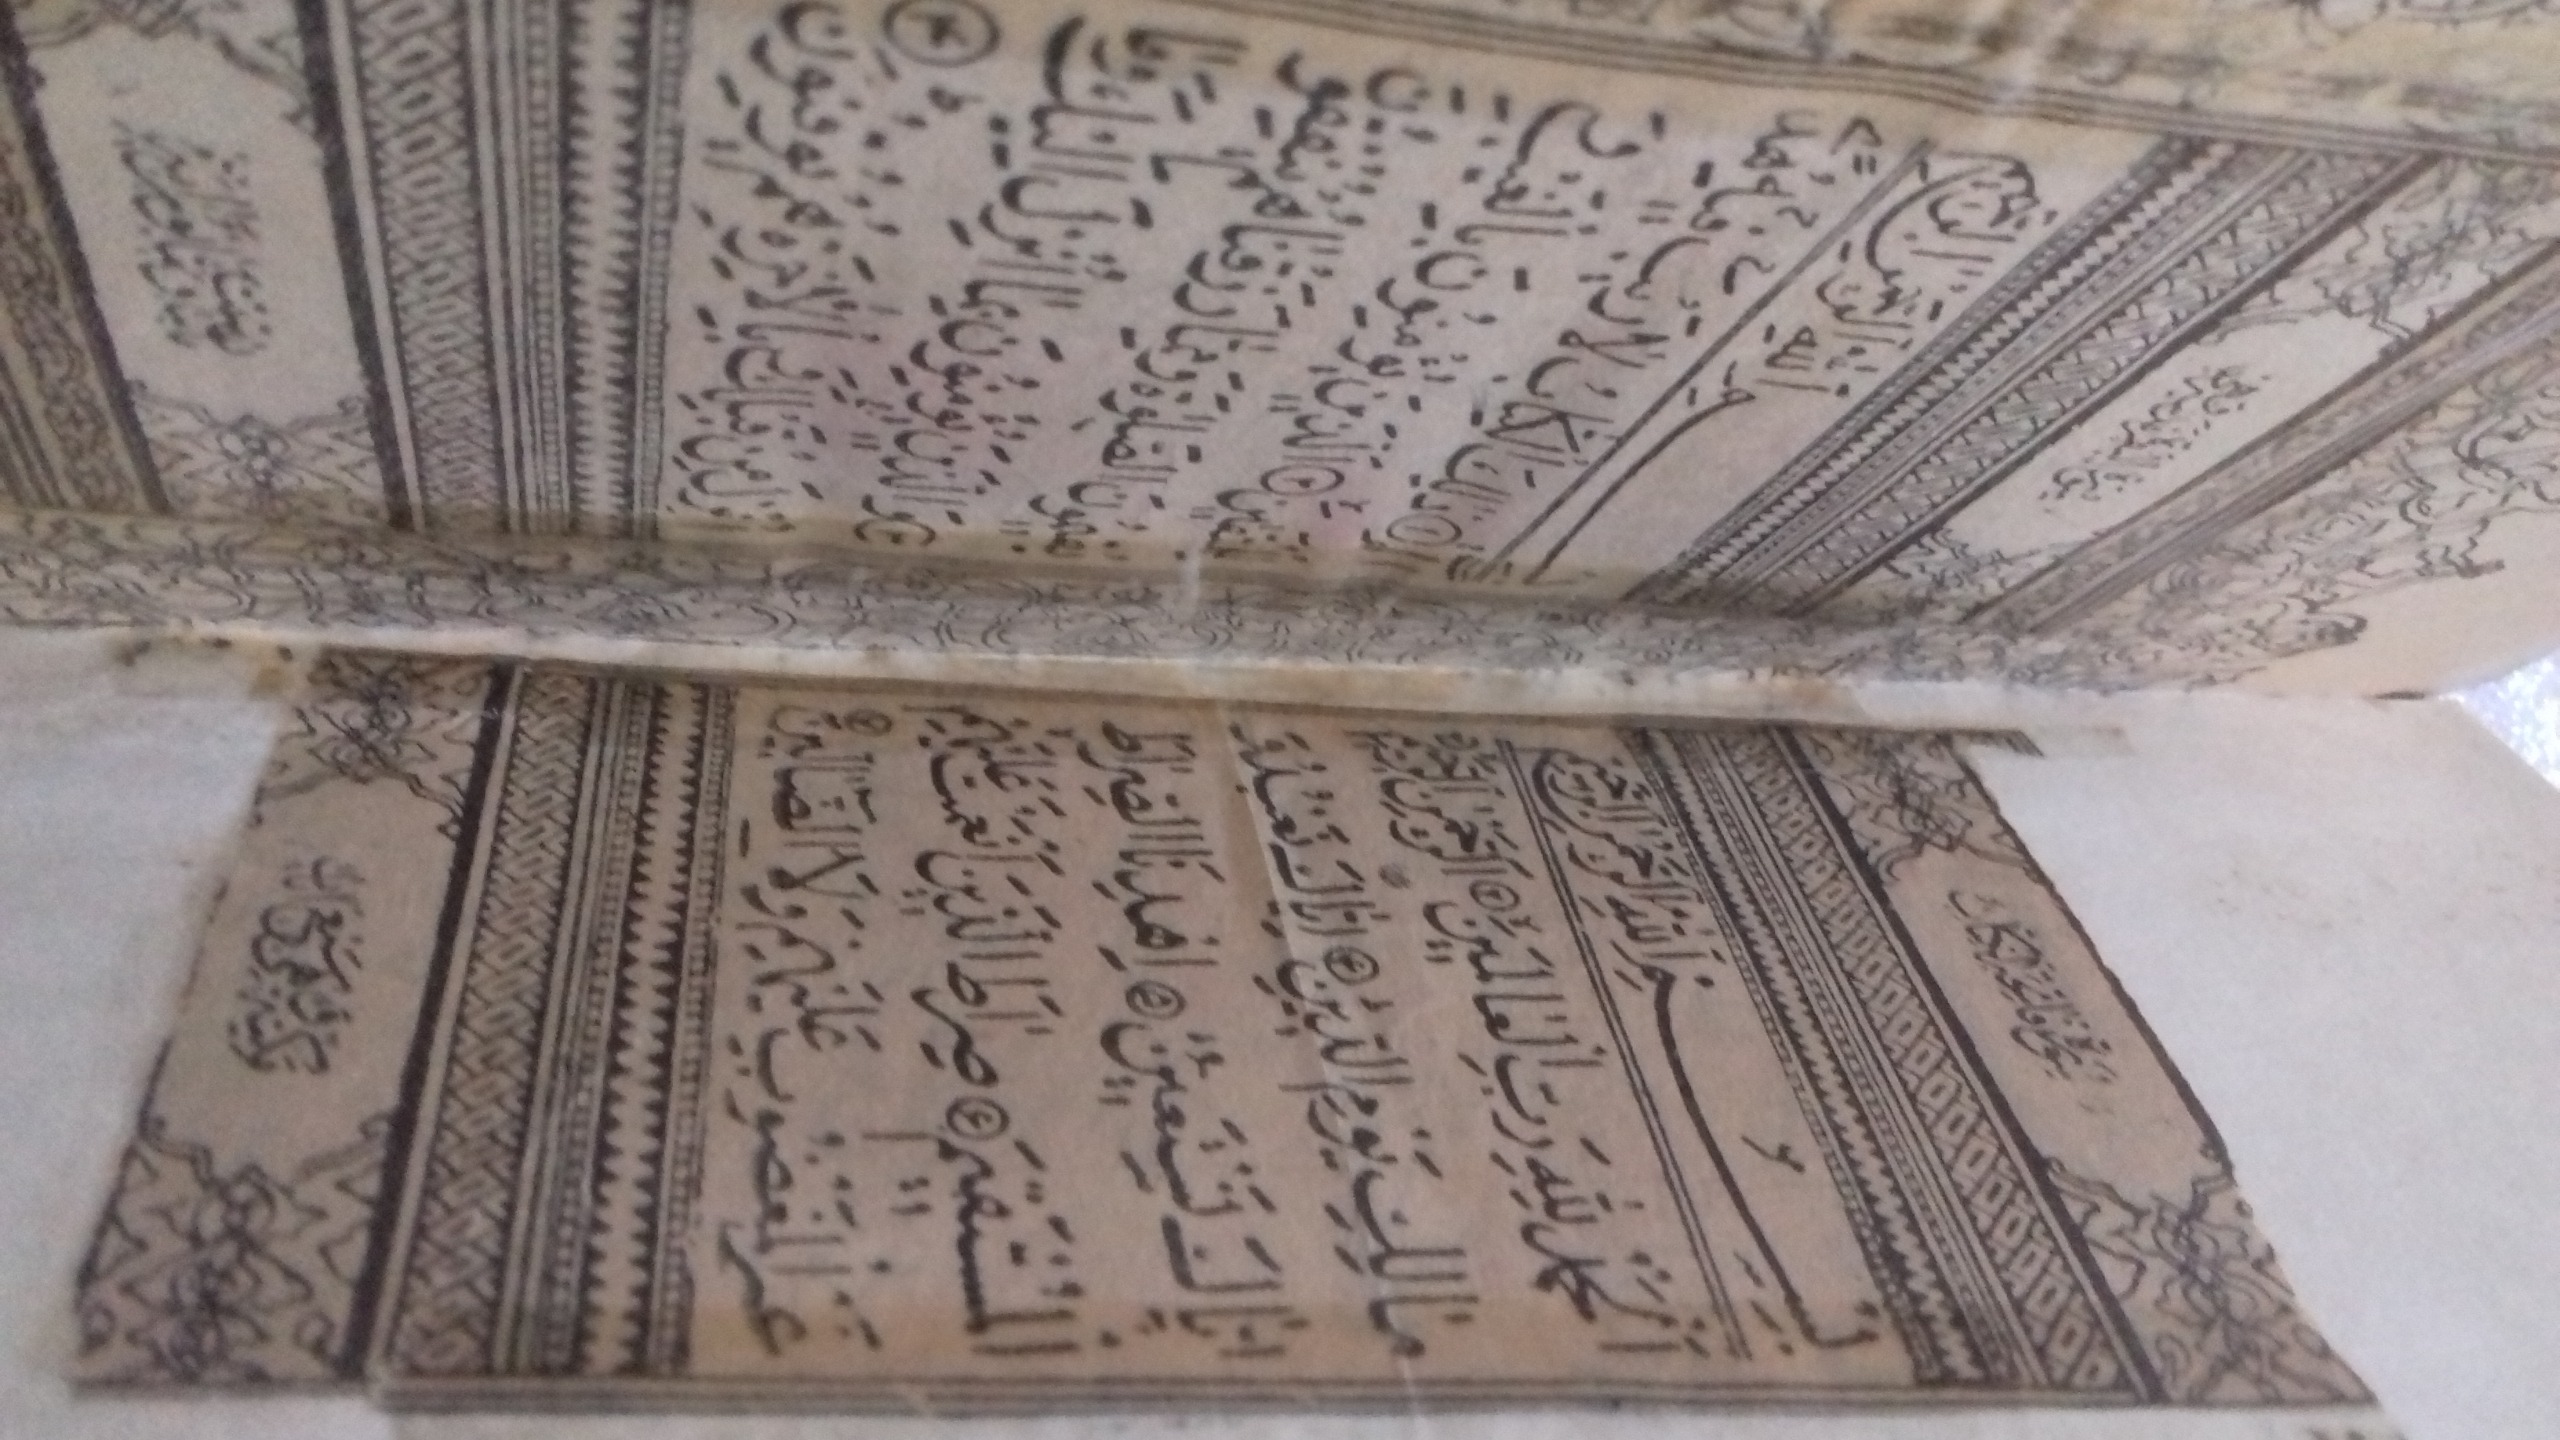 بِسْمِ اللهِ الرَّحْمٰنِ الرَّحِيْمِ
اَلْحَمْدُ لِلّٰهِ رَبِّ الْعَالَمِيْنَ ۝ اَلرَّحْمٰنِ الرَّحِيْمِ
مَالِكِ يَوْمِ الدِّيْنِ ۝ اِيَّاكَ نَعْبُدُ وَ
اِيَّاكَ نَسْتَعِيْنُ ۝ اِهْدِنَا الصِّرَاطَ
الْمُسْتَقِيْمَ ۝ صِرَاطَ الَّذِيْنَ اَنْعَمْتَ عَلَيْهِمْ
غَيْرِ الْمَغْضُوْبِ عَلَيْهِمْ وَلَا الضَّالِّيْنَ ۝
بِسْمِ اللهِ الرَّحْمٰنِ الرَّحِيْمِ
ذٰلِكَ الْكِتَابُ لَا رَيْبَ فِيْهِ هُدًى
يُؤْمِنُوْنَ بِالْغَيْبِ وَ
لِلْمُتَّقِيْنَ ۝ الَّذِيْنَ
يُقِيْمُوْنَ الصَّلٰوةَ وَمِمَّا رَزَقْنَاهُمْ يُنْفِقُوْنَ
وَالَّذِيْنَ يُؤْمِنُوْنَ بِمَا اُنْزِلَ اِلَيْكَ وَمَا
اُنْزِلَ مِنْ قَبْلِكَ وَبِالْاٰخِرَةِ هُمْ يُوْقِنُوْنَ